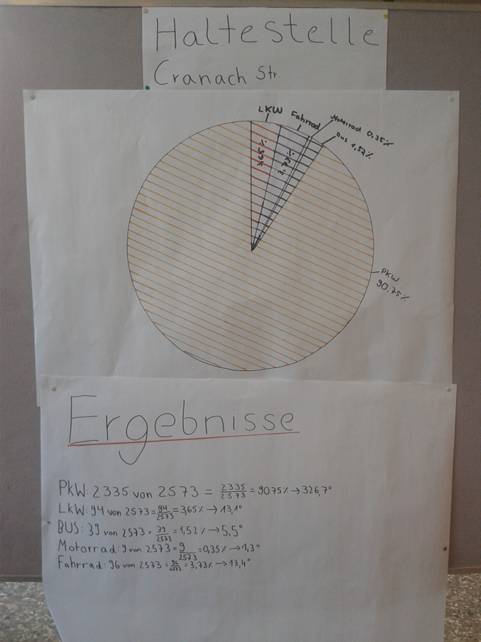 Haltestelle
Cranach Str.
LKW
Fahrrad
Motorrad 0,35%
Bus 1,52%
3,65%
3,73%
PKW
90,75%
Ergebnisse
PKW: 2335 von 2573 = 2335/2573 = 90,75% → 326,7°
LKW: 94 von 2573 = 94/2573 = 3,65% → 13,1°
BUS: 39 von 2573 = 39/2573 = 1,52% → 5,5°
Motorrad: 9 von 2573 = 9/2573 = 0,35% → 1,3°
Fahrrad: 96 von 2573 = 96/2573 = 3,73% → 13,4°